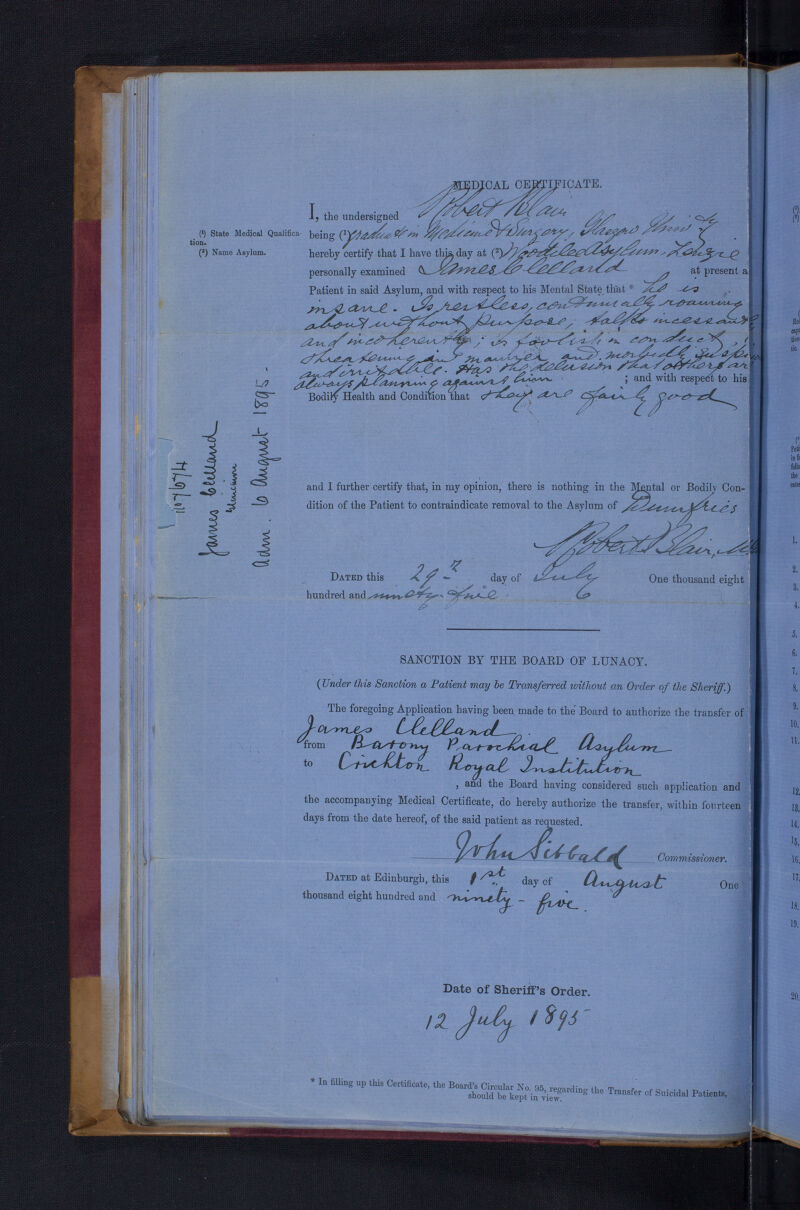 MEDICAL CERTIFICATE.
I, the undersigned Robert Blair
(¹) State Medical Qualifica-
tion.
(²) Name Asylum.
being (¹) graduate in Medicine & Surgery, Glasgow Univ
hereby certify that I have this day at (²) Woodilee Asylum, Lenzie
personally examined James Clelland at present a
Patient in said Asylum, and with respect to his Mental State that * he is
insane. Is restless, continually roaming
about without purpose, talks incessantly
and incoherently; is foolish in conduct,
threatening in manner and morbidly suspi
and irritable. Has the delusion that others ar
always planning against him ; and with respect to his
Bodily Health and Condition that they are fairly good
1107674
James Clelland
Adm. 6 August 1895.
and I further certify that, in my opinion, there is nothing in the Mental or Bodily Con-
dition of the Patient to contraindicate removal to the Asylum of Dumfries
Robert Blair, M
DATED this 29th day of July One thousand eight
hundred and ninety-five
SANCTION BY THE BOARD OF LUNACY.
(Under this Sanction a Patient may be Transferred without an Order of the Sheriff.)
The foregoing Application having been made to the Board to authorize the transfer of
James Clelland
from Barony Parochial Asylum
to Crichton Royal Institution
, and the Board having considered such application and
the accompanying Medical Certificate, do hereby authorize the transfer, within fourteen
days from the date hereof, of the said patient as requested.
John Sibbald Commissioner.
DATED at Edinburgh, this 1st day of August One
thousand eight hundred and ninety-five.
Date of Sheriff's Order.
12 July 1895
* In filling up this Certificate, the Board's Circular No. 95, regarding the Transfer of Suicidal Patients,
should be kept in view.
1.
2.
3.
4.
5.
6.
7.
8.
9.
10.
11.
12.
13.
14.
15.
16.
17.
18.
19.
20.